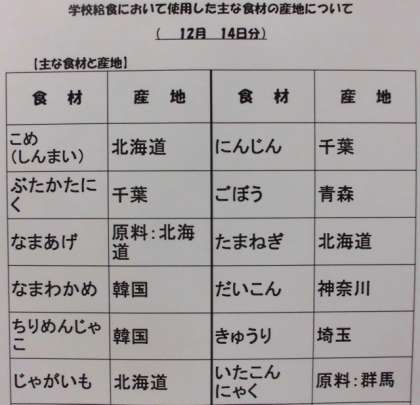 学校給食において使用した主な食材の産地について
(　12月　14日分)
【主な食材と産地】
食　材　産　地　食　材　産　地
こめ
(しんまい)　北海道　にんじん　千葉
ぶたかたに
く　千葉　ごぼう　青森
なまあげ　原料:北海
道　たまねぎ　北海道
なまわかめ　韓国　だいこん　神奈川
ちりめんじゃ
こ　韓国　きゅうり　埼玉
じゃがいも　北海道　いたこん
にゃく　原料:群馬